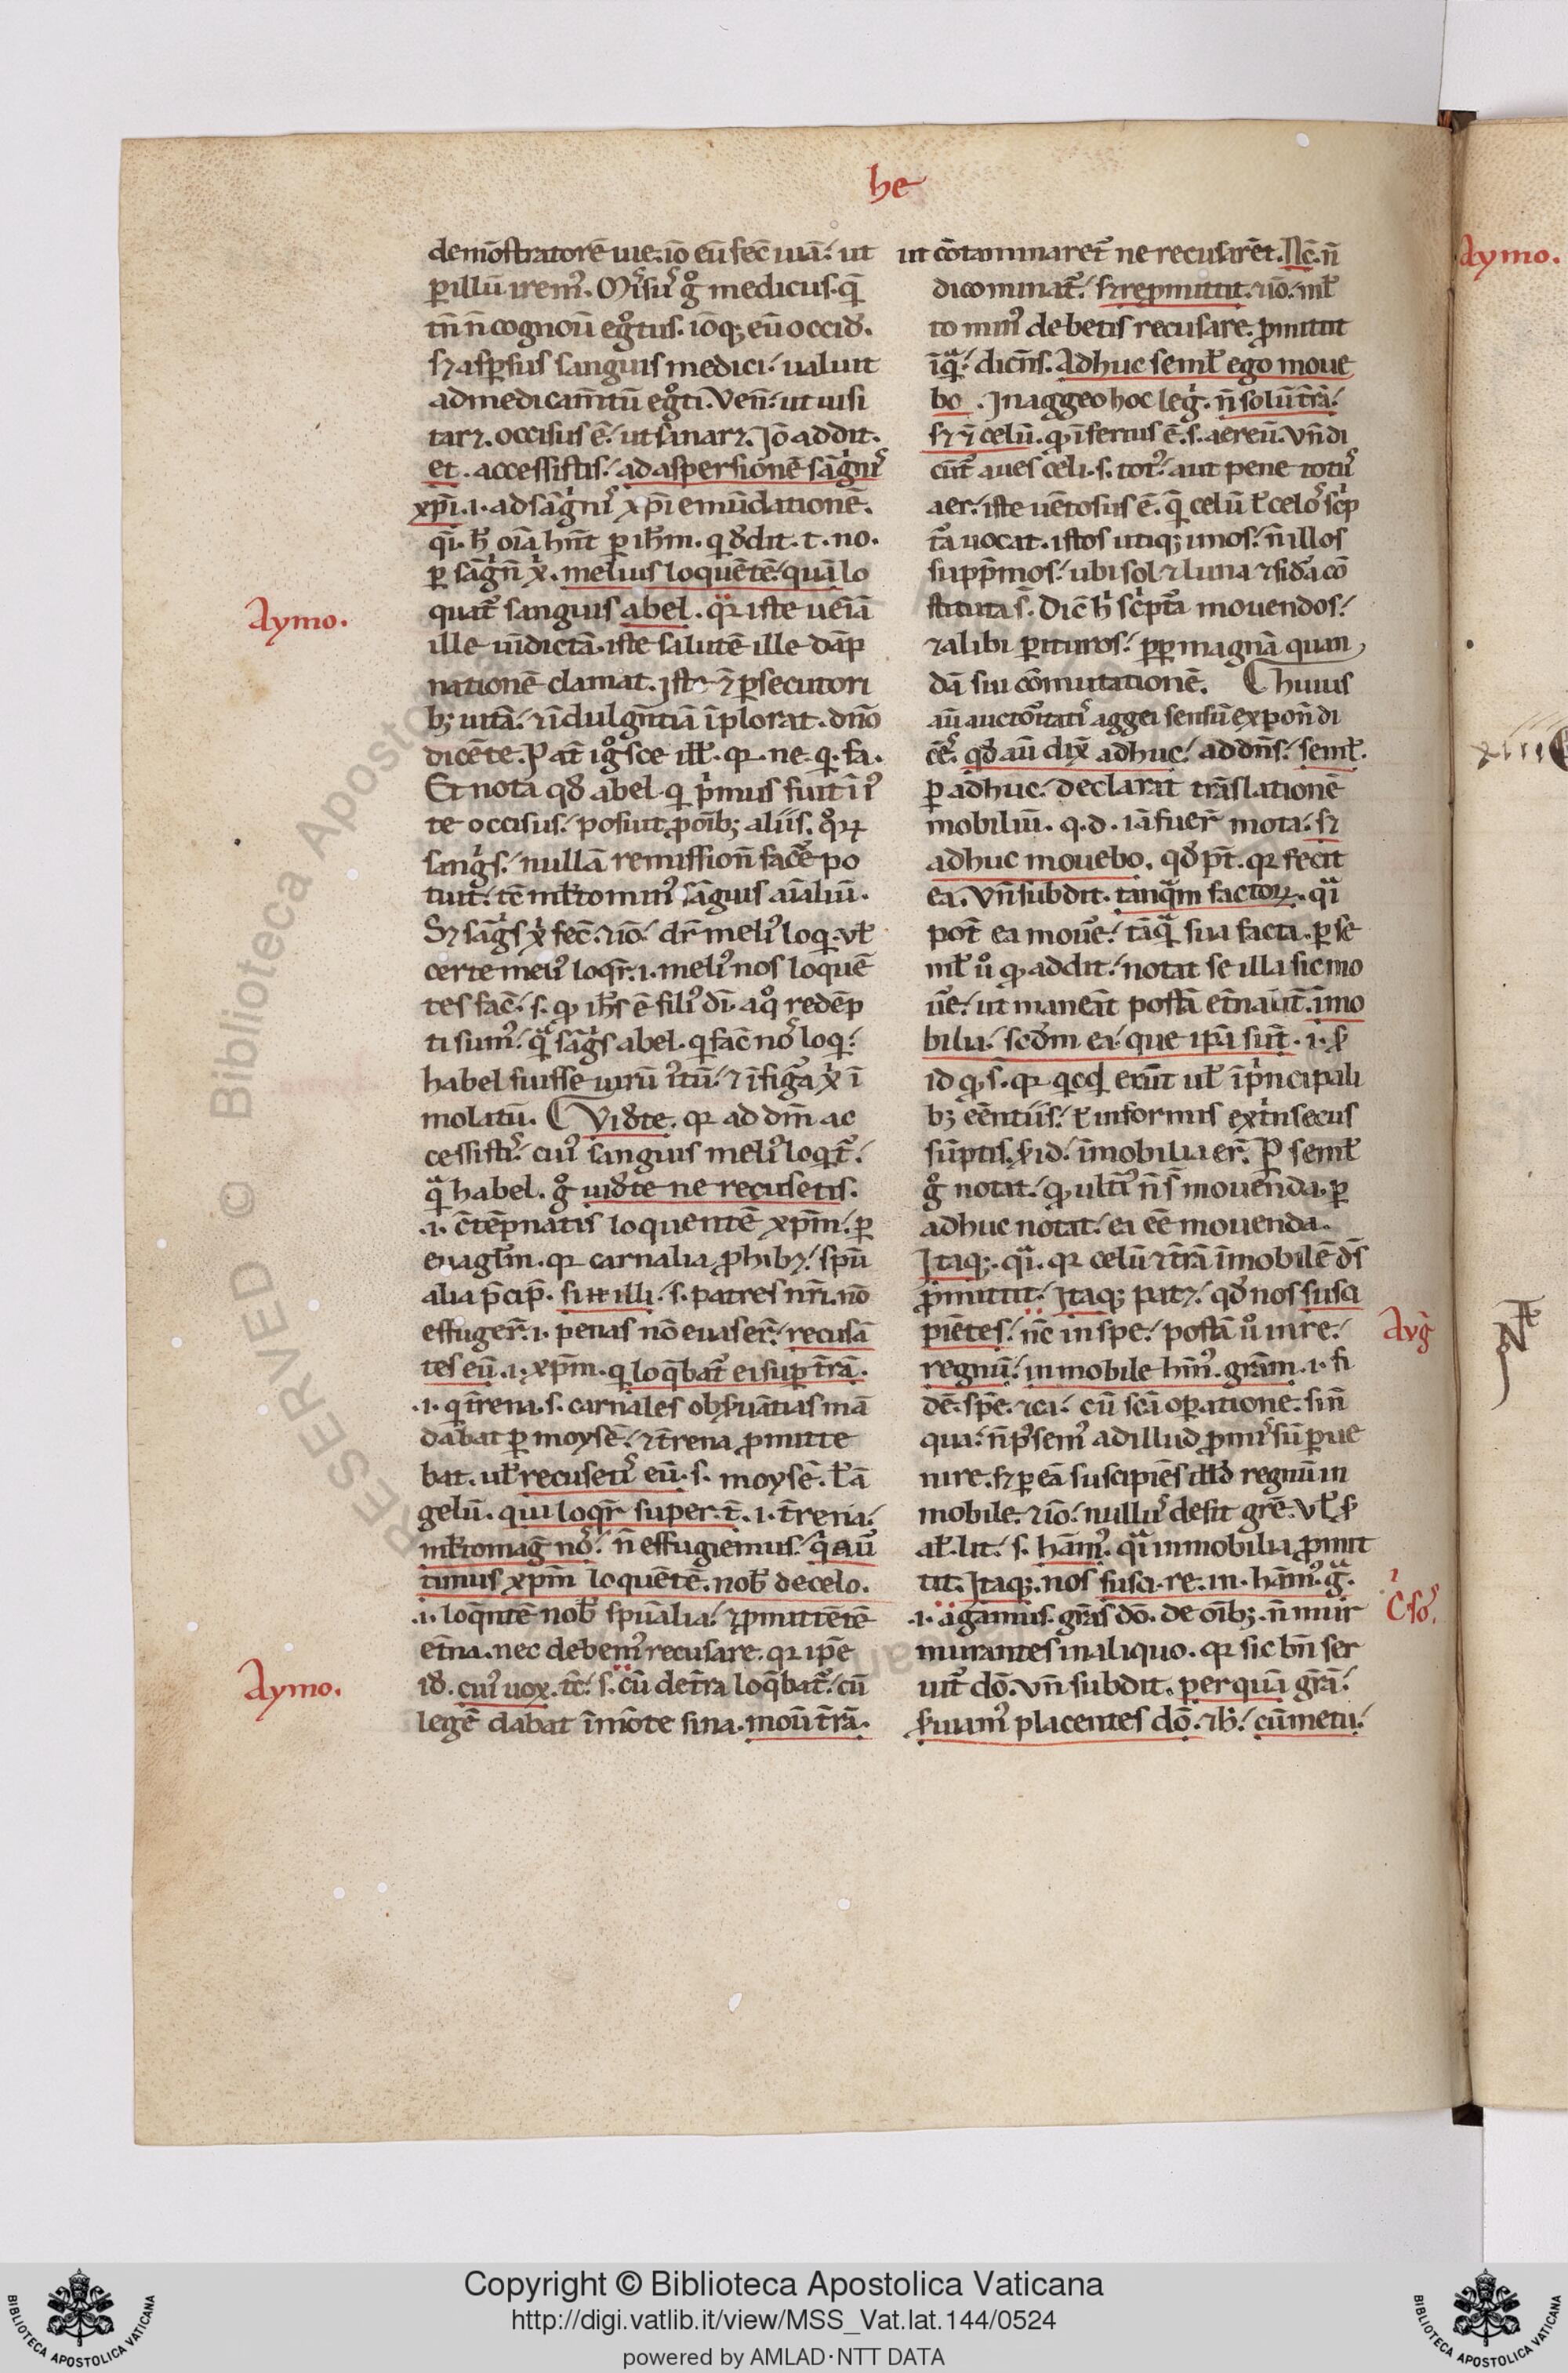 he
demōstratorē uie. iō eū fec̄ uiā. ut
ꝑ illū irem᷒. Misus gͦ medicus. q̄
tn̄ n̄ cognou egͦtus. iōq; eū occid.
sꝫ asꝑsus sanguis medici. ualuit
ad medicam̄tū egͦti. Ven̄. ut uisi
tarꝫ. occisus ē. ut sanarꝫ. Jō addit.
et. accessistis. ad aspersionē sāgni᷒
xp̄i. .i. ad sāgni᷒ xp̄i emūdationē.
ꝑ sāgn̄ x̄. melius loquētē. quā lo
Aymo.
quat᷒ sanguis abel. qꝛ iste ueīā
ille uīdictā. iste salutē ille dāp
nationē clamat. iste ē ꝑsecutori
b; uitā. ⁊ īdulgn̄tiā īplorat. dn̄o
dicēte. Pat̄ igͦsce ill̄. qꝛ. ne. q. fa.
Et nota qd abel. q p̄mus fuit ī
te occisus. posuit ꝓ oīb; aliis. qͦꝝ
sangͥs. nullā remission̄ facē po
tuit. tē ml̄to min᷒ sāguis aīaliū.
Sꝫ sāgͥs x̄ fec̄. ⁊ iō dr̄ meli᷒ loq. vl̄
certe meli᷒ loqr̄. .i. meli᷒ nos loquē
tes fac̄. s. qꝫ ih̄s ē fili᷒ dī. a qͦ redēp
ti sum᷒. qͣ sāgͥs abel. q fac̄ nō loq.
habel fuisse uirū
molatū. Vidēte. qꝛ ad dm̄ ac
cessisti᷒. cui᷒ sanguis meli᷒ loqt᷒.
qͣ habel. gͦ uidēte ne recusetis.
.i. c̄tēpnatis loquentē xp̄m. ꝑ
euāgl̄m. qꝛ carnalia ꝓhibꝫ. spū
alia p̄cip̄. si n̄ illi. s. patres nr̄i. nō
effuger̄. .i. penas nō euaser̄. recusā
tes eū. .i. xp̄m. q loq̄bat᷒ ei sup t̄rā.
.i. q t̄rena. s. carnales obseruātias mā
dabat ꝑ moysē. ⁊ t̄rena ꝓmitte
bat. ul̄ recuseti᷒ eū. s. moysē. l̄ ā
gelū. qui loqr̄ super. t̄. .i. t̄rena.
ml̄to maḡ nō. n̄ effugiemus. qͥ au᷒
timus xp̄m loquētē. nob̄ de celo.
.i. loq̄ntē nob̄ spūalia. ⁊ ꝓmittētē
et̄na. nec debem᷒ recusare. qꝛ ipē
Aymo.
id. cui᷒ uox. tc̄. s. cū de t̄ra loq̄bat᷒. cū
legē dabat ī mōte sina. mou t̄rā.
ut cōtaminaret᷒ ne recusarēt. Nc̄. n̄
Aymo.
dicominat᷒. sꝫ repmittit. ⁊ iō. ml̄
to min᷒ debetis recusare. ꝓmittit
īqͣ. dicn̄s. Adhuc seml̄ ego moue
bo. In aggeo hoc legͥ. n̄ solū t̄rā.
sꝫ ⁊ celū. qꝫ īferius ē. s. aereū. Vn̄ di
cūt᷒ aues celi. s. tot᷒. aut pene totu᷒
aer. iste uētosus ē. q̄ celū l̄ celos sc̄p
tͣa uocat. istos utiq; imos. n̄ illos
supp̄mos. ubi sol ⁊ luna ⁊ sida cō
stituta s̄. Dic̄ h̄ sc̄ptͣa mouendos.
⁊ alibi ꝑituros. ꝓp magnā quan
dā sui cōmutationē. C huius
aū auctoͥtati᷒ aggei sensū expon̄di
cē᷒. qd aū dix̄ adhuc. ad dn̄s. seml̄.
ꝑ adhuc. declarat trāslationē
mobiliū. q. d. iā fuer̄ mota. sꝫ
adhuc mouebo. qd pt̄. qꝛ fecit
ea. Vn̄ subdit. tanqͣm factoꝝ. qͣi
pot̄ ea mouē. tāqͣ sua facta. ꝑ se
ml̄ uͦ qꝫ addit. notat se illa sic mo
uē. ut maneāt postā et̄na ut. īmo
bilia. scdm ea. que ipā sūt.
id qꝫ s̄. qꝛ qcqd erūt ul̄ īpͥncipali
b; eēntiis. l̄ in formis ext̄nsecus
sūptis. id. īmobilia er̄. Per seml̄
gͦ notat. qꝫ ulti᷒ n̄ s̄ mouenda. ꝑ
adhuc notat. ea eē mouenda.
Itaq;. qͣi. qꝛ celū ⁊ t̄rā īmobilē ds̄
ꝓmittit. Itaq; patꝫ. qd nos susci
Avgͥ
piētes. nc̄ in spe. postā uͦ in re.
regnū. inmobile hm᷒. grām. .i. fi
dē. spē. ⁊ ca. cū scā oꝑatione. sin̄
qua. n̄ p᷒sem᷒ ad illud ꝓmi᷒sū ꝑue
nire. sꝫ ꝑ eā suscipiēs illd regnū in
mobile. ⁊ iō. nullu᷒ desit grē. Vl̄
al̄. lit. s. hām᷒. qͣi inmobilia ꝓmit
tit. Itaq; nos susci. re. in. hm᷒. gͣ.
Cso᷒.
.i. agamus. grās dō. de oīb;. n̄ mur
murantes in aliquo. qꝛ sic bn̄ ser
uit᷒ dō. Vn̄ subdit. per quā grā.
seruiam᷒ placentes dō. ⁊ h̄. cū metu.
RESERVED © Biblioteca Apostolica
Copyright © Biblioteca Apostolica Vaticana
http://digi.vatlib.it/view/MSS_Vat.lat.144/0524
powered by AMLAD·NTT DATA
BIBLIOTECA APOSTOLICA VATICANA
BIBLIOTECA APOSTOLICA VATICANA